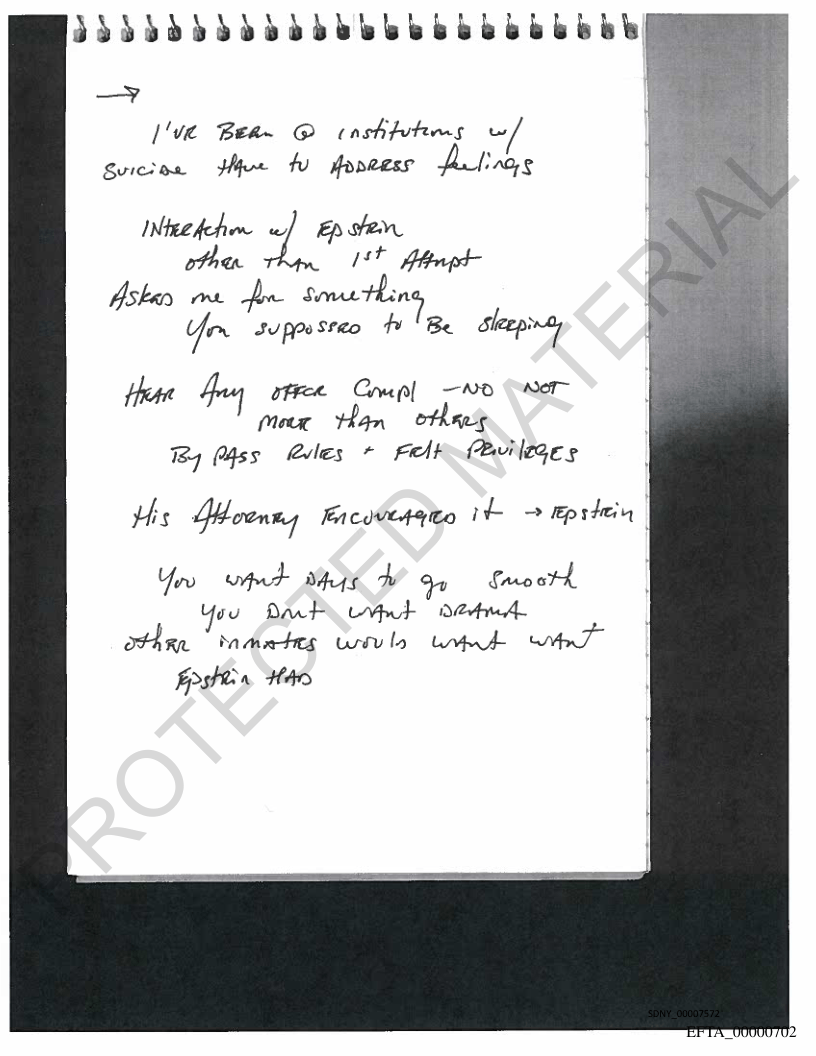 I'VE BEEN @ institutions w/
SUICIDE HAVE to ADDRESS feelings
INTERACTION w/ EPSTEIN
other THAN 1st Attmpt
ASKED me for something
You SUPPOSSED to BE Sleeping
HEAR Any OFFCR Compl – NO NOT
MORE than others
BY PASS RULES + FELt PRIVILEGES
His Attorney ENCOURAGED it → EPSTEIN
You WANT DAYS to go Smooth
YOU DNT WANT DRAMA
other INMATES WOULD WANT WANT
EPSTEIN HAD
PROTECTED MATERIAL
SDNY_00007572
EFTA_00000702